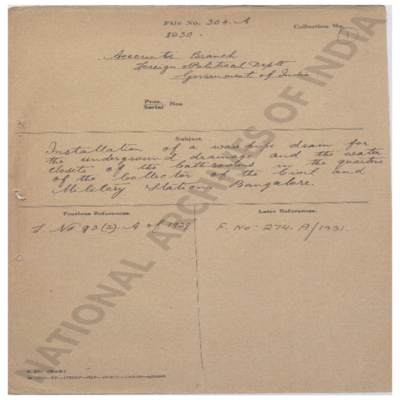 File No. 304-A
Collection No.
1930.
Accounts Branch
Foreign & Political Deptt
Government of India
Proc.
Serial Nos
Subject
Installation of a waste pipe drain for
the underground drainage and the water
closets of the bath rooms in the quarters
of the Collector of the Civil and
Military Station Bangalore.
Previous References.
Later References.
F. No 93(2)-A of 1929
F. No: 274-A/1931.
NATIONAL ARCHIVES OF INDIA